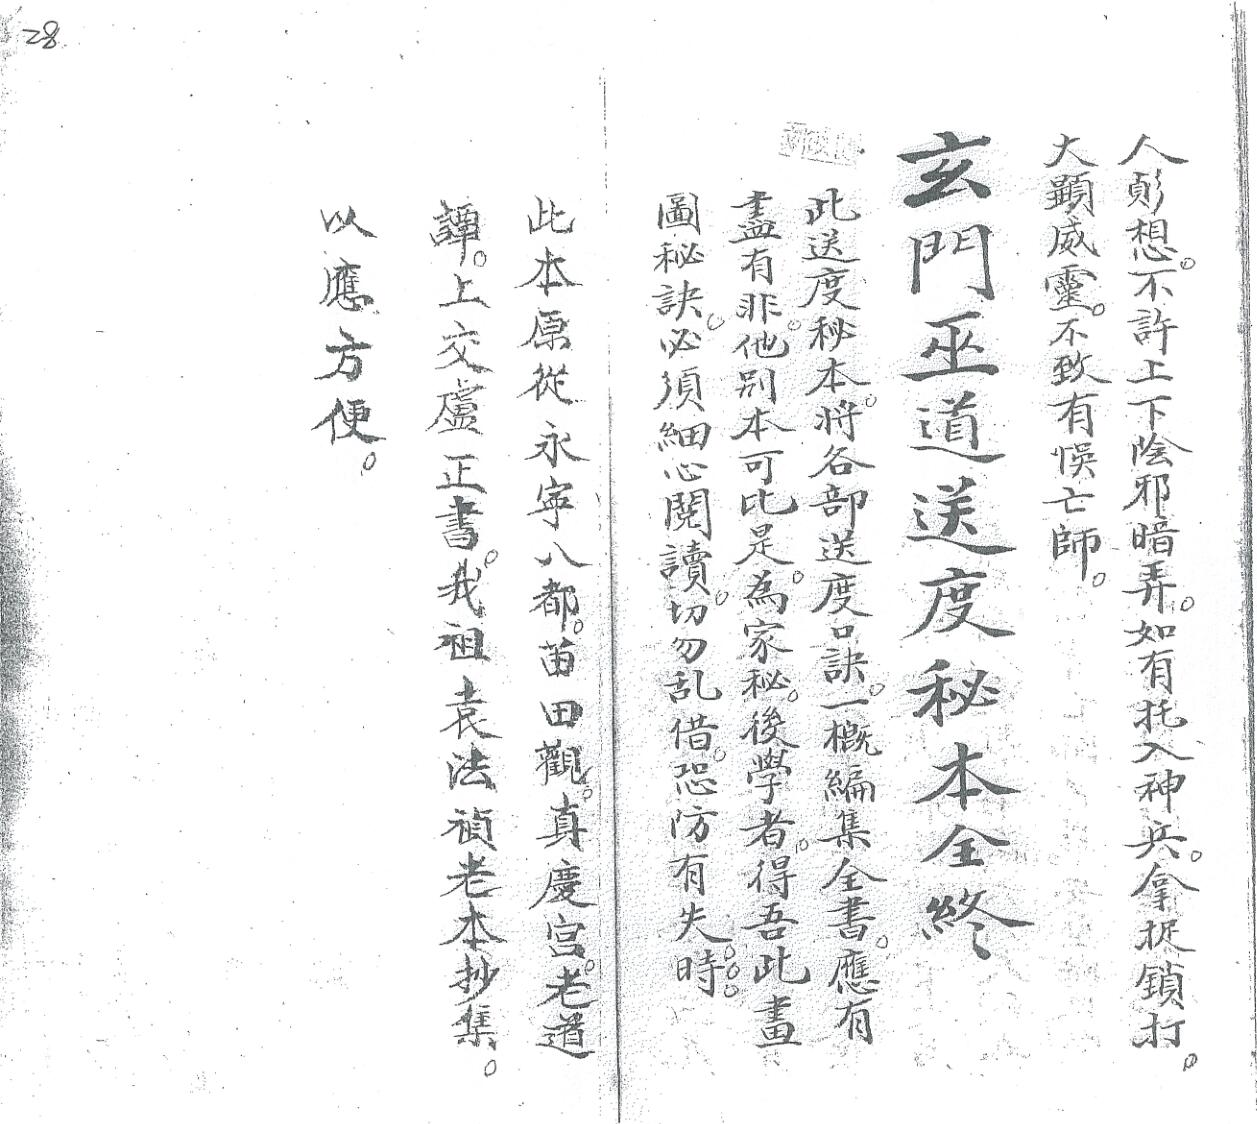 28
人彭想。不許上下陰邪暗弄。如有托入神兵。拿捉鎖打。
大顯威靈。不致有悞亡師。
玄門巫道送度秘本全終
此送度秘本。將各部送度口訣。一概編集全書。應有
盡有非。他別本可比是。為家秘。後學者。得吾此畫
圖秘訣。必須細心閱讀。切勿乱借。恐防有失。時。
此本原從永寧八都。苗田觀。真慶宮。老道
譚。上交盧正書。我祖袁法禎老本抄集。
以應方便。